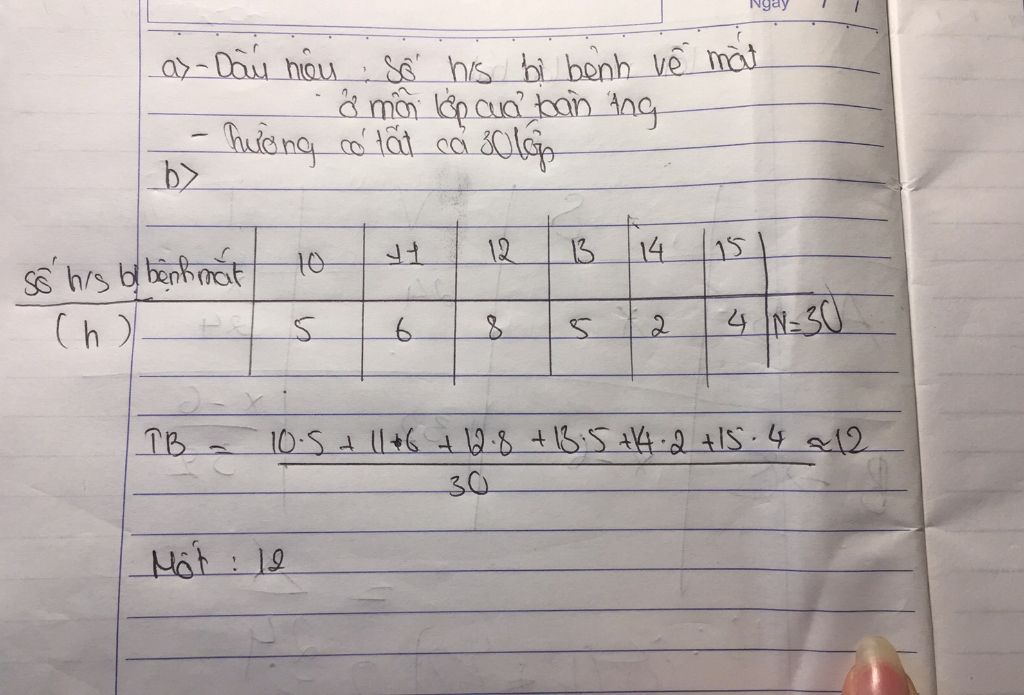 Ngày / /
a> - Dấu hiệu : Số h/s bị bệnh về mắt
ở mỗi lớp của toàn trng
- Trường có tất cả 30 lớp
b>
Số h/s bị bệnh mắt 10 11 12 13 14 15
(n) 5 6 8 5 2 4 N=30
TB = 10·5 + 11·6 + 12·8 + 13·5 + 14·2 + 15·4 ≈ 12
30
Mốt : 12